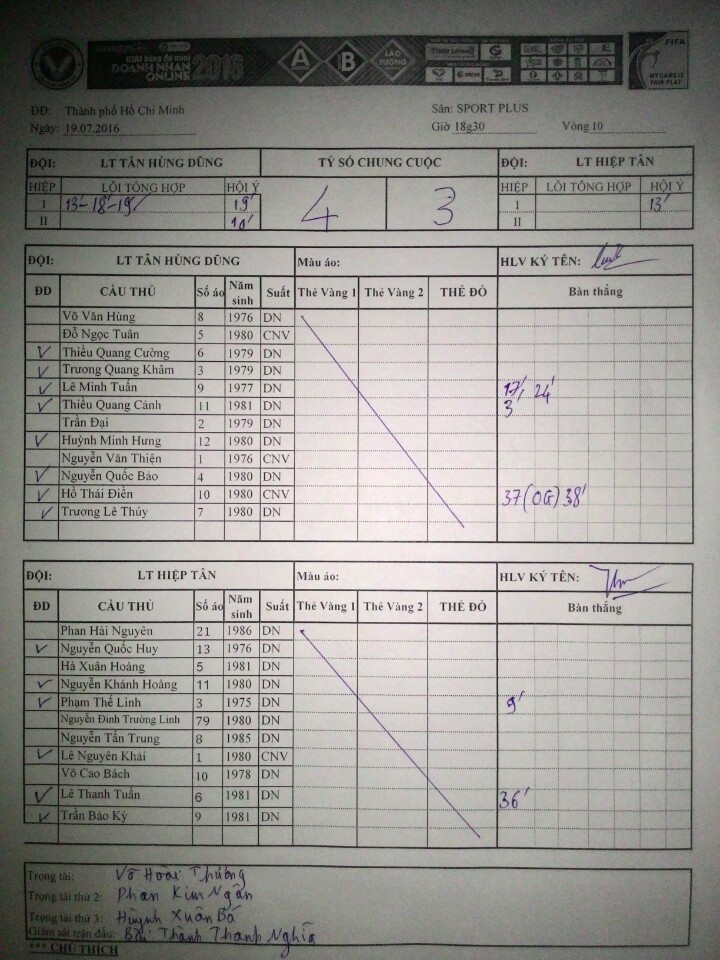 GIẢI bóng đá mini
DOANH NHÂN
ONLINE 2016
A B LÀO TƯỜNG
FIFA
MY GAME IS
FAIR PLAY
ĐĐ: Thành phố Hồ Chí Minh Sân: SPORT PLUS
Ngày: 19.07.2016 Giờ 18g30 Vòng 10
ĐỘI: LT TÂN HÙNG DŨNG TỶ SỐ CHUNG CUỘC ĐỘI: LT HIỆP TÂN
HIỆP LỖI TỔNG HỢP HỘI Ý 4 3 HIỆP LỖI TỔNG HỢP HỘI Ý
I 13'-18'-19' 19' I 13'
II 10' II
ĐỘI: LT TÂN HÙNG DŨNG Màu áo: HLV KÝ TÊN:
ĐD CẦU THỦ Số áo Năm sinh Suất Thẻ Vàng 1 Thẻ Vàng 2 THẺ ĐỎ Bàn thắng
Võ Văn Hùng 8 1976 DN
Đỗ Ngọc Tuân 5 1980 CNV
Thiều Quang Cường 6 1979 DN
Trương Quang Khâm 3 1979 DN
Lê Minh Tuấn 9 1977 DN 17', 24'
Thiều Quang Cảnh 11 1981 DN 3'
Trần Đại 2 1979 DN
Huỳnh Minh Hưng 12 1980 DN
Nguyễn Văn Thiện 1 1976 CNV
Nguyễn Quốc Bảo 4 1980 DN
Hồ Thái Điền 10 1980 CNV 37(OG) 38'
Trương Lê Thúy 7 1980 DN
ĐỘI: LT HIỆP TÂN Màu áo: HLV KÝ TÊN:
ĐD CẦU THỦ Số áo Năm sinh Suất Thẻ Vàng 1 Thẻ Vàng 2 THẺ ĐỎ Bàn thắng
Phan Hải Nguyên 21 1986 DN
Nguyễn Quốc Huy 13 1976 DN
Hà Xuân Hoàng 5 1981 DN
Nguyễn Khánh Hoàng 11 1980 DN
Phạm Thế Linh 3 1975 DN 9'
Nguyễn Đình Trường Linh 79 1980 DN
Nguyễn Tấn Trung 8 1985 DN
Lê Nguyên Khải 1 1980 CNV
Võ Cao Bách 10 1978 DN
Lê Thanh Tuấn 6 1981 DN 36'
Trần Bảo Kỳ 9 1981 DN
Trọng tài: Võ Hoài Thương
Trọng tài thứ 2: Phan Kim Ngân
Trọng tài thứ 3: Huỳnh Xuân Bá
Giám sát trận đấu: Bùi Thành Thanh Nghĩa
*** CHÚ THÍCH